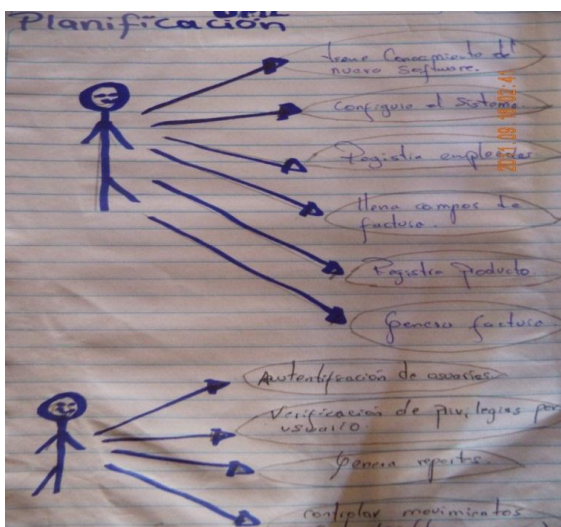 UML
Planificación
tiene Conocimiento del
nuevo Software.
Configura el Sistema
Registra empleados
llena campos de
factura.
Registra Producto
Genera factura
Autentificación de usuarios.
Verificación de privilegios por
usuario.
Genera reportes.
controlar movimientos